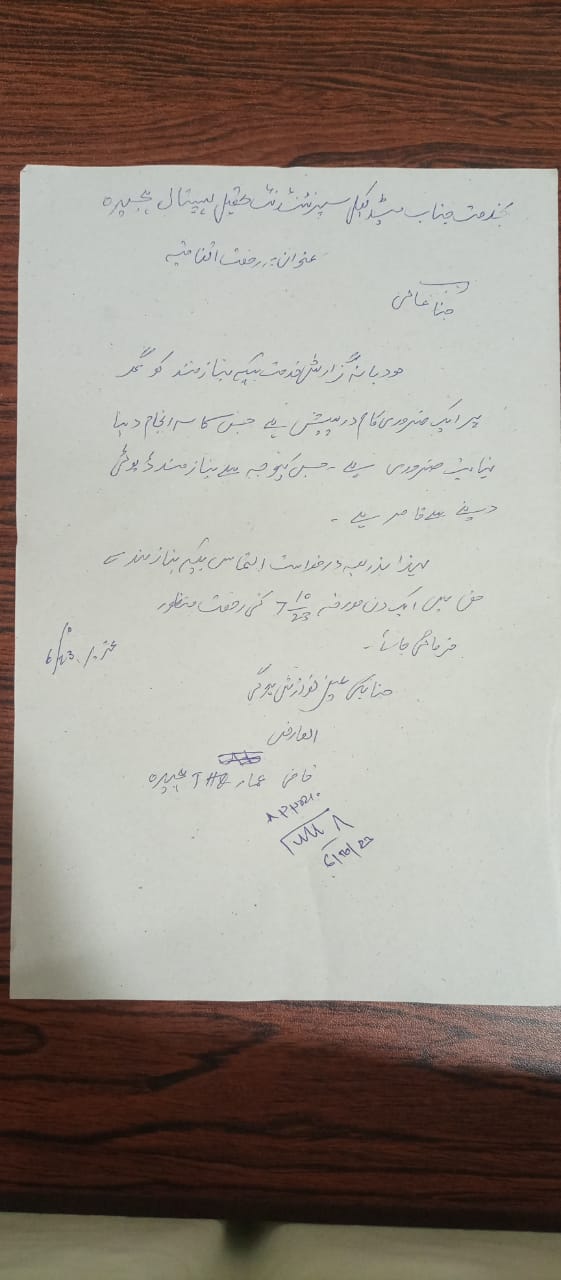 بخدمت جناب میڈیکل سپرنٹنڈنٹ تحصیل ہسپتال ہجیرہ
عنوان:۔ رخصت اتفاقیہ
جناب عالی
مودبانہ گزارش خدمت ہیکہ نیاز مند کو گھر
پر ایک ضروری کام درپیش ہے جس کا سر انجام دینا
نہایت ضروری ہے ۔ جس کیوجہ سے نیاز مند ڈیوٹی
دینے سے قاصر ہے ۔
لہذا بذریعہ درخواست التماس ہیکہ نیاز مند کے
حق میں ایک دن مورخہ 7/10/23 کی رخصت منظور
فرمائی جائے ۔
جناب کی عین نوازش ہوگی
العارض
قاضی عمار THQ ہجیرہ
6/10/23
6/10/23